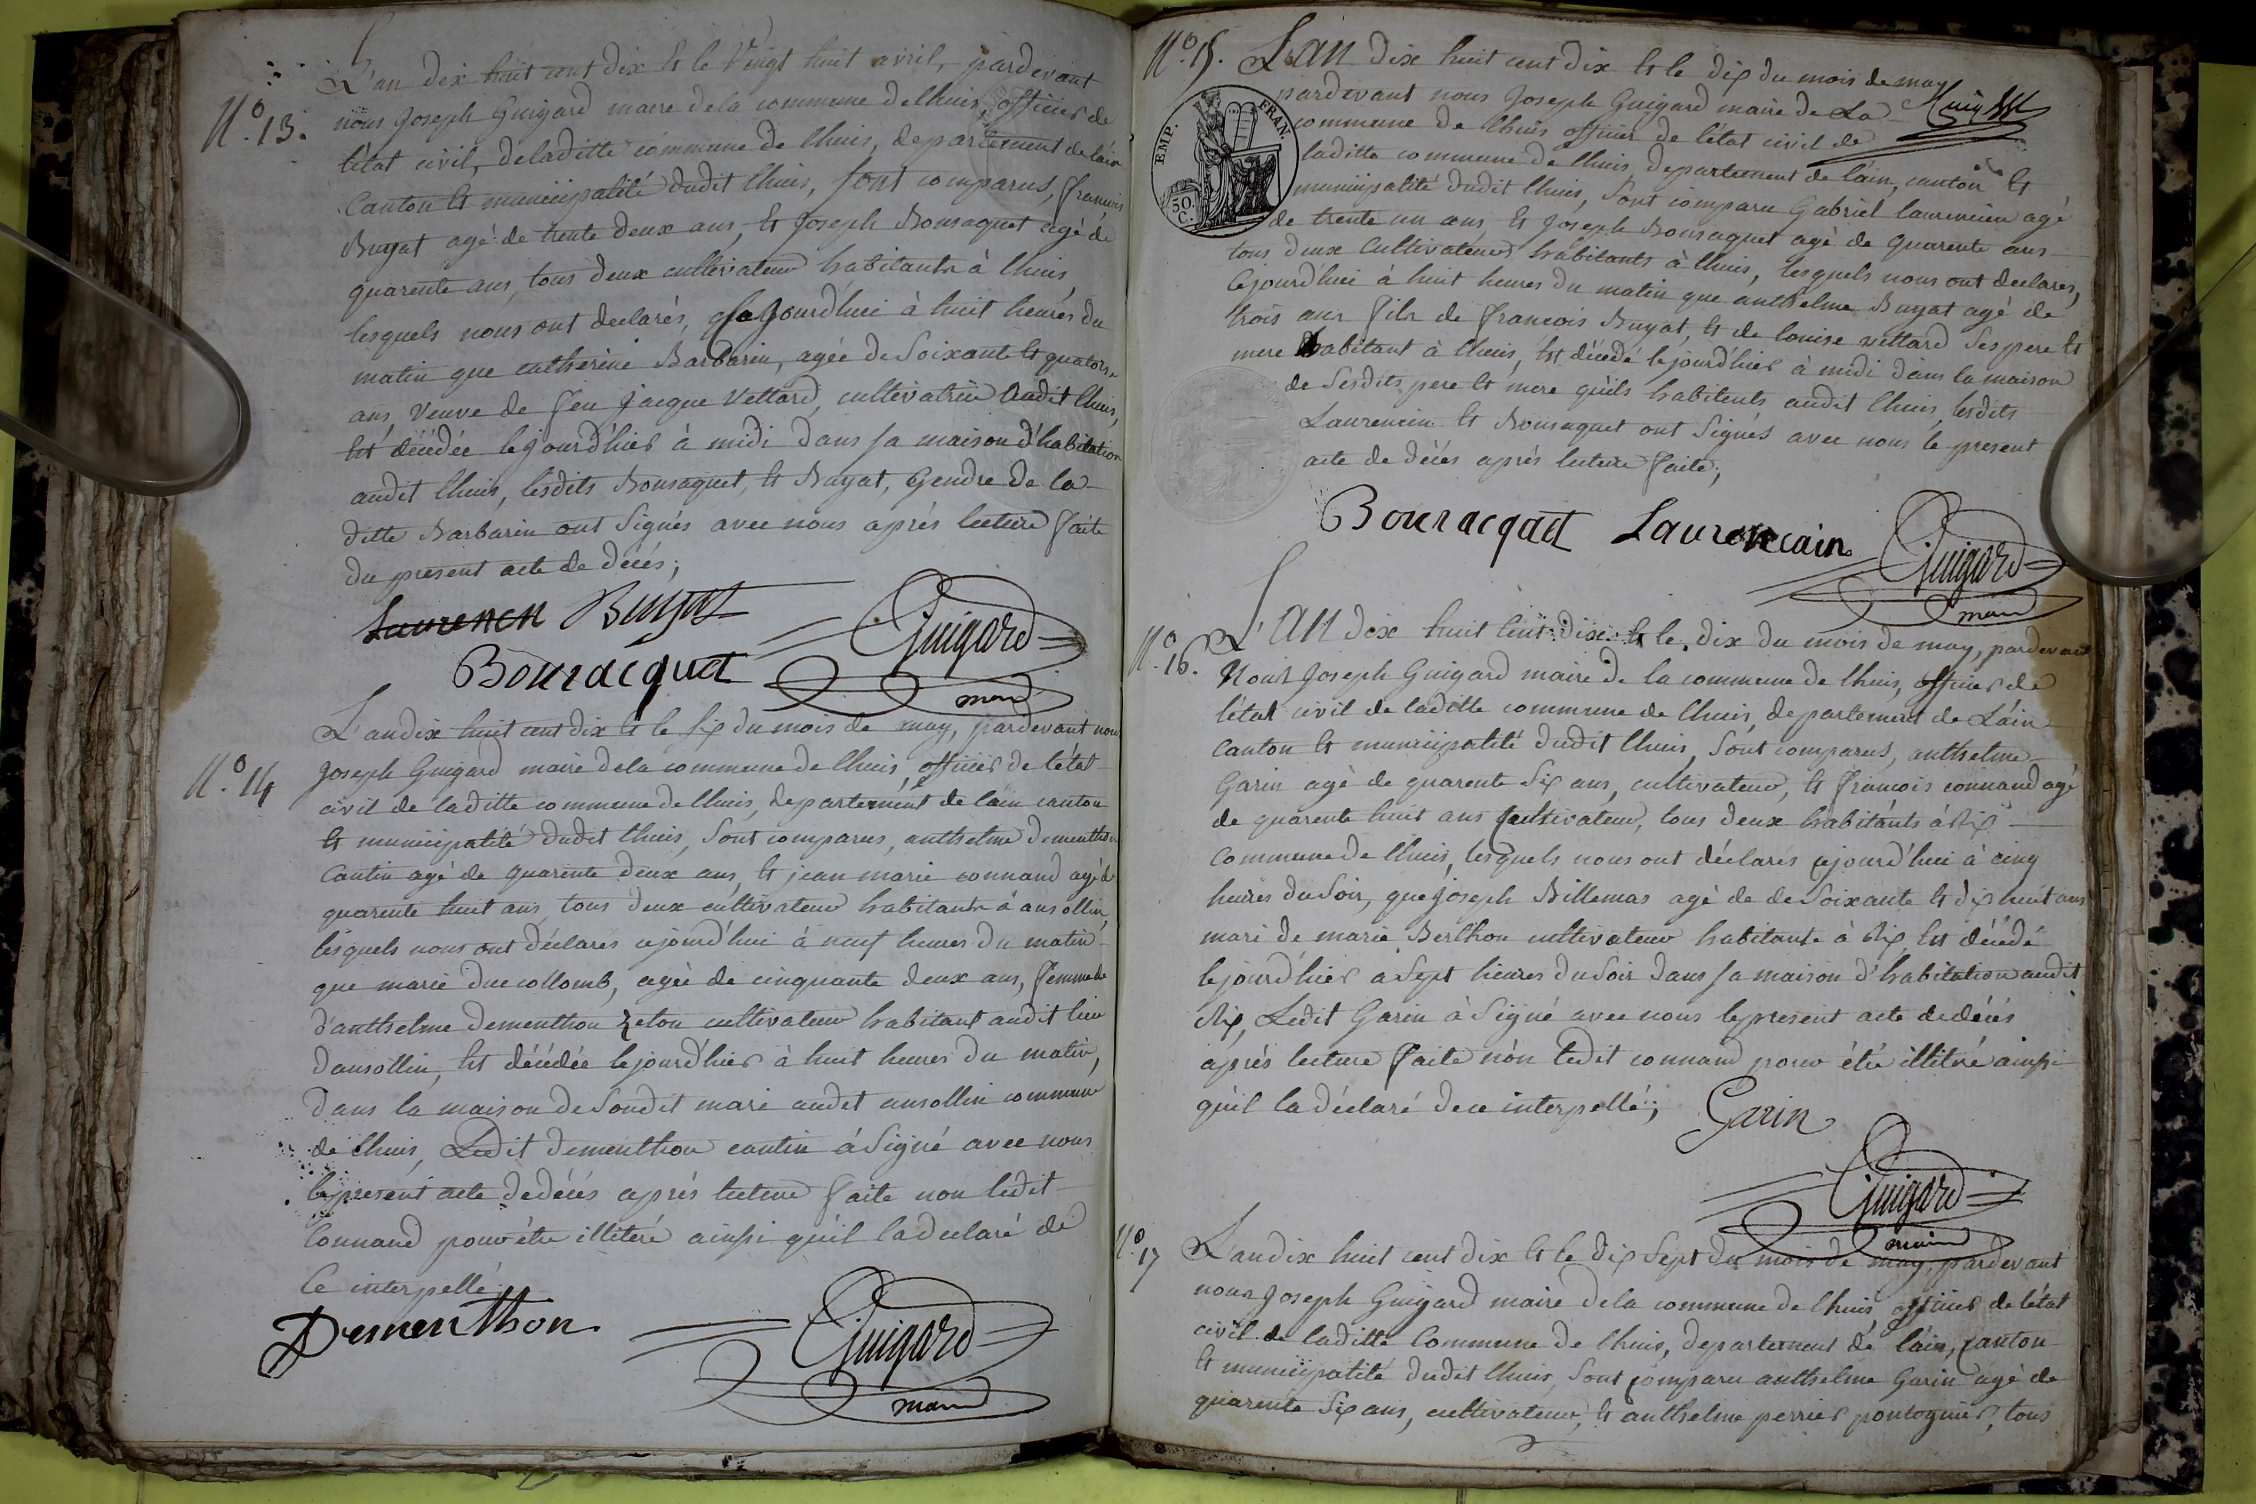 N.º 13.
L'an dix huit cent dix et le vingt huit avril, pardevant
nous Joseph Guigard maire de la commune de lhuis, officier de
l'état civil, de laditte commune de lhuis, departement de lain
Canton et municipalité dudit lhuis, sont comparus, francois
Buyat agé de trente deux ans, et Joseph Bonsaquet agé de
quarente ans, tous deux cultivateur habitants à lhuis,
lesquels nous ont declarés, cejourd'hui à huit heures du
matin que catherine Barbarin, agée de soixante et quatorze
ans, veuve de feu jacque Vettard, cultivatrice audit lhuis,
est décédée lejourd'hier à midi dans sa maison d'habitation
audit lhuis, lesdits Bonsaquet, et Buyat, Gendre de la
ditte Barbarin ont signés avec nous aprés lecture faite
du present acte de décés;
Laurencn Buyat
Bouracquet Guigard
maire
N.º 14
L'an dix huit cent dix et le six du mois de may, pardevant nous
Joseph Guigard maire de la commune de lhuis, officier de l'état
civil de laditte commune de lhuis, departement de lain canton
et municipalité dudit lhuis, sont comparus, anthelme dementhon
Cantin agé de quarente deux ans, et jean marie connand agé de
quarente huit ans tous deux cultivateur habitants à ansollin,
lesquels nous ont déclarés cejourd'hui à neuf heures du matin
que marie ducollomb, agée de cinquante deux ans, femme de
d'anthelme dementhon Zeton cultivateur habitant audit lieu
dansollin, est décédée lejourd'hier à huit heures du matin,
dans la maison de sondit mari audit ansollin commune
de lhuis, Ledit dementhon cantin à signé avec nous
le present acte de décés aprés lecture faite non ledit
Connand pour étre illiteré ainsi qu'il la declaré de
Ce interpellé
Dementhon. Guigard
maire
N.º 15.
L'an dix huit cent dix et le dix du mois de may
pardevant nous Joseph Guigard maire de La
commune de lhuis officier de l'état civil de
laditte commune de lhuis, departement de l'ain, canton et
municipalité dudit lhuis, sont comparu Gabriel laurencin agé
de trente un ans, et Joseph Bonsaquet agé de quarente ans
tous deux cultivateurs habitants à lhuis, lesquels nous ont declarés,
Cejourd'hui à huit heures du matin que anthelme Buyat agé de
trois ans fils de francois Buyat, et de louise vettard ses pere et
mere habitant à lhuis, est décédé lejourd'hier à midi dans la maison
de sesdits pere et mere qu'ils habitents audit lhuis, lesdits
Laurencin et Bonsaquet ont signés avec nous le present
acte de décés aprés lecture faite;
EMP. FRAN.
50. C.
Bouracquet Laurencain Guigard
maire
N.º 16.
L'an dix huit cent dix et le dix du mois de may, pardevant
Nous Joseph Guigard maire de la commune de lhuis, officier de
l'état civil de laditte commune de lhuis, departement de L'ain
Canton et municipalité dudit lhuis, sont comparus, anthelme
Garin agé de quarente six ans, cultivateur, et francois connand agé
de quarente huit ans cultivateur, tous deux habitants à Rix
Commune de lhuis, lesquels nous ont déclarés cejourd'hui à cinq
heures du soir, que joseph Billemas agé de de soixante et dix huit ans
mari de marie Berthon cultivateur habitante à Rix, est décédé
lejourd'hier à sept heures du soir dans sa maison d'habitation audit
Rix, Ledit Garin à signé avec nous le present acte de décés
aprés lecture faite nón ledit connand pour étre illitéré ainsi
qu'il la déclaré de ce interpellé;
Garin
Guigard
maire
N.º 17
L'an dix huit cent dix et le dix sept du mois de may, pardevant
nous Joseph Guigard maire de la commune de lhuis, officier de l'état
civil de laditte Commune de lhuis, departement de l'ain, canton
et municipalité dudit lhuis, sont comparu anthelme Garin agé de
quarente six ans, cultivateur, et anthelme perrier pontognier, tous